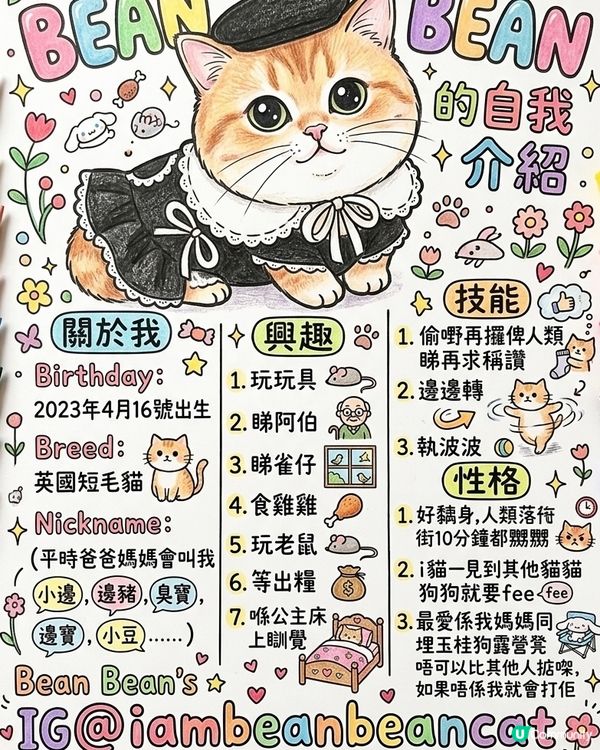 BEAN BEAN
的自我
介紹
關於我
Birthday:
2023年4月16號出生
Breed:
英國短毛貓
Nickname:
(平時爸爸媽媽會叫我
小邊, 邊豬, 臭寶,
邊寶, 小豆......)
興趣
1. 玩玩具
2. 睇阿伯
3. 睇雀仔
4. 食雞雞
5. 玩老鼠
6. 等出糧
7. 喺公主床
上瞓覺
技能
1. 偷嘢再攞俾人類
睇再求稱讚
2. 邊邊轉
3. 執波波
性格
1. 好黐身,人類落
街10分鐘都嬲嬲
2. i貓一見到其他貓貓
狗狗就要fee
fee
3. 最愛係我媽媽同
埋玉桂狗露營凳
唔可以比其他人掂㗎,
如果唔係我就會打佢
Bean Bean's
IG@iambeanbeancat
U Community